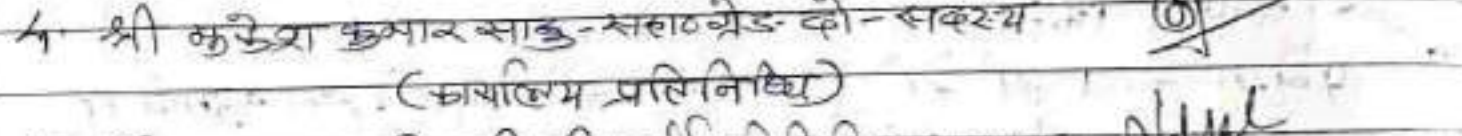 4. श्री मुकेश कुमार साहु - सहा० ग्रेड - दो - सदस्य
(कार्यालय प्रतिनिधि)